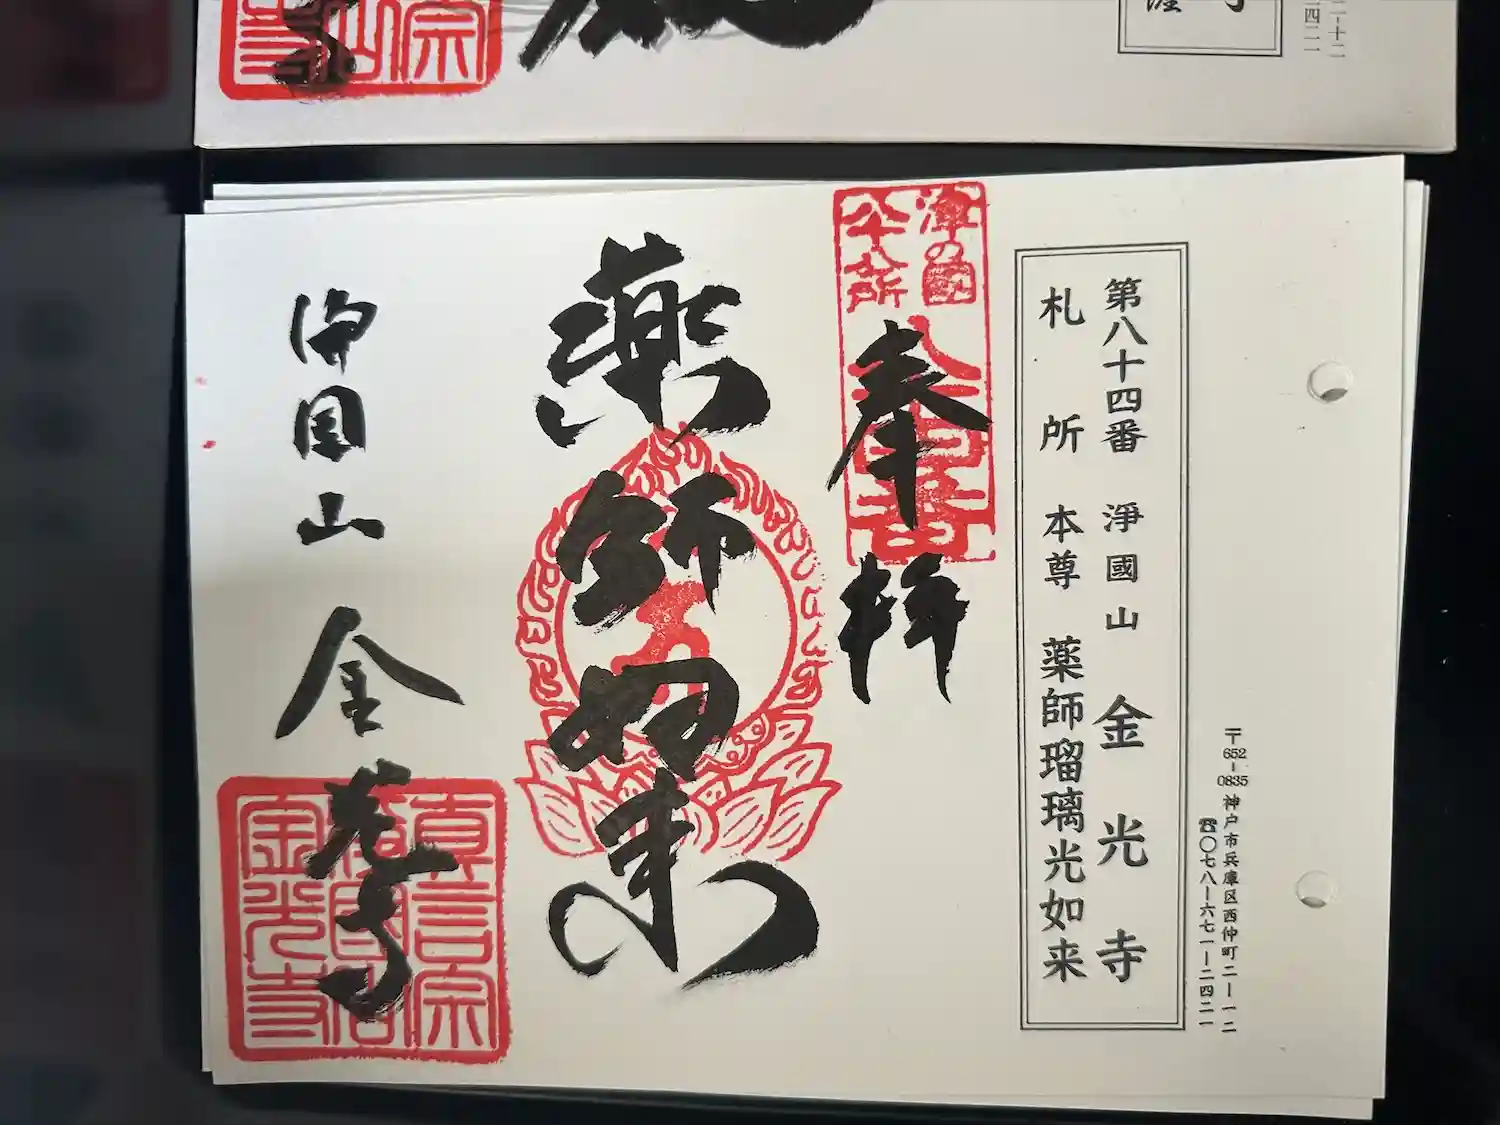 二-十二
四二一
〒652-0835 神戸市兵庫区西仲町二-一二
☎〇七八-六七一-二四二一
第八十四番 淨國山 金光寺
札所 本尊 薬師瑠璃光如来
津の國
八十八所
八十四番
奉拝
薬師如来
浄国山 金光寺
真言宗
金光寺
宗